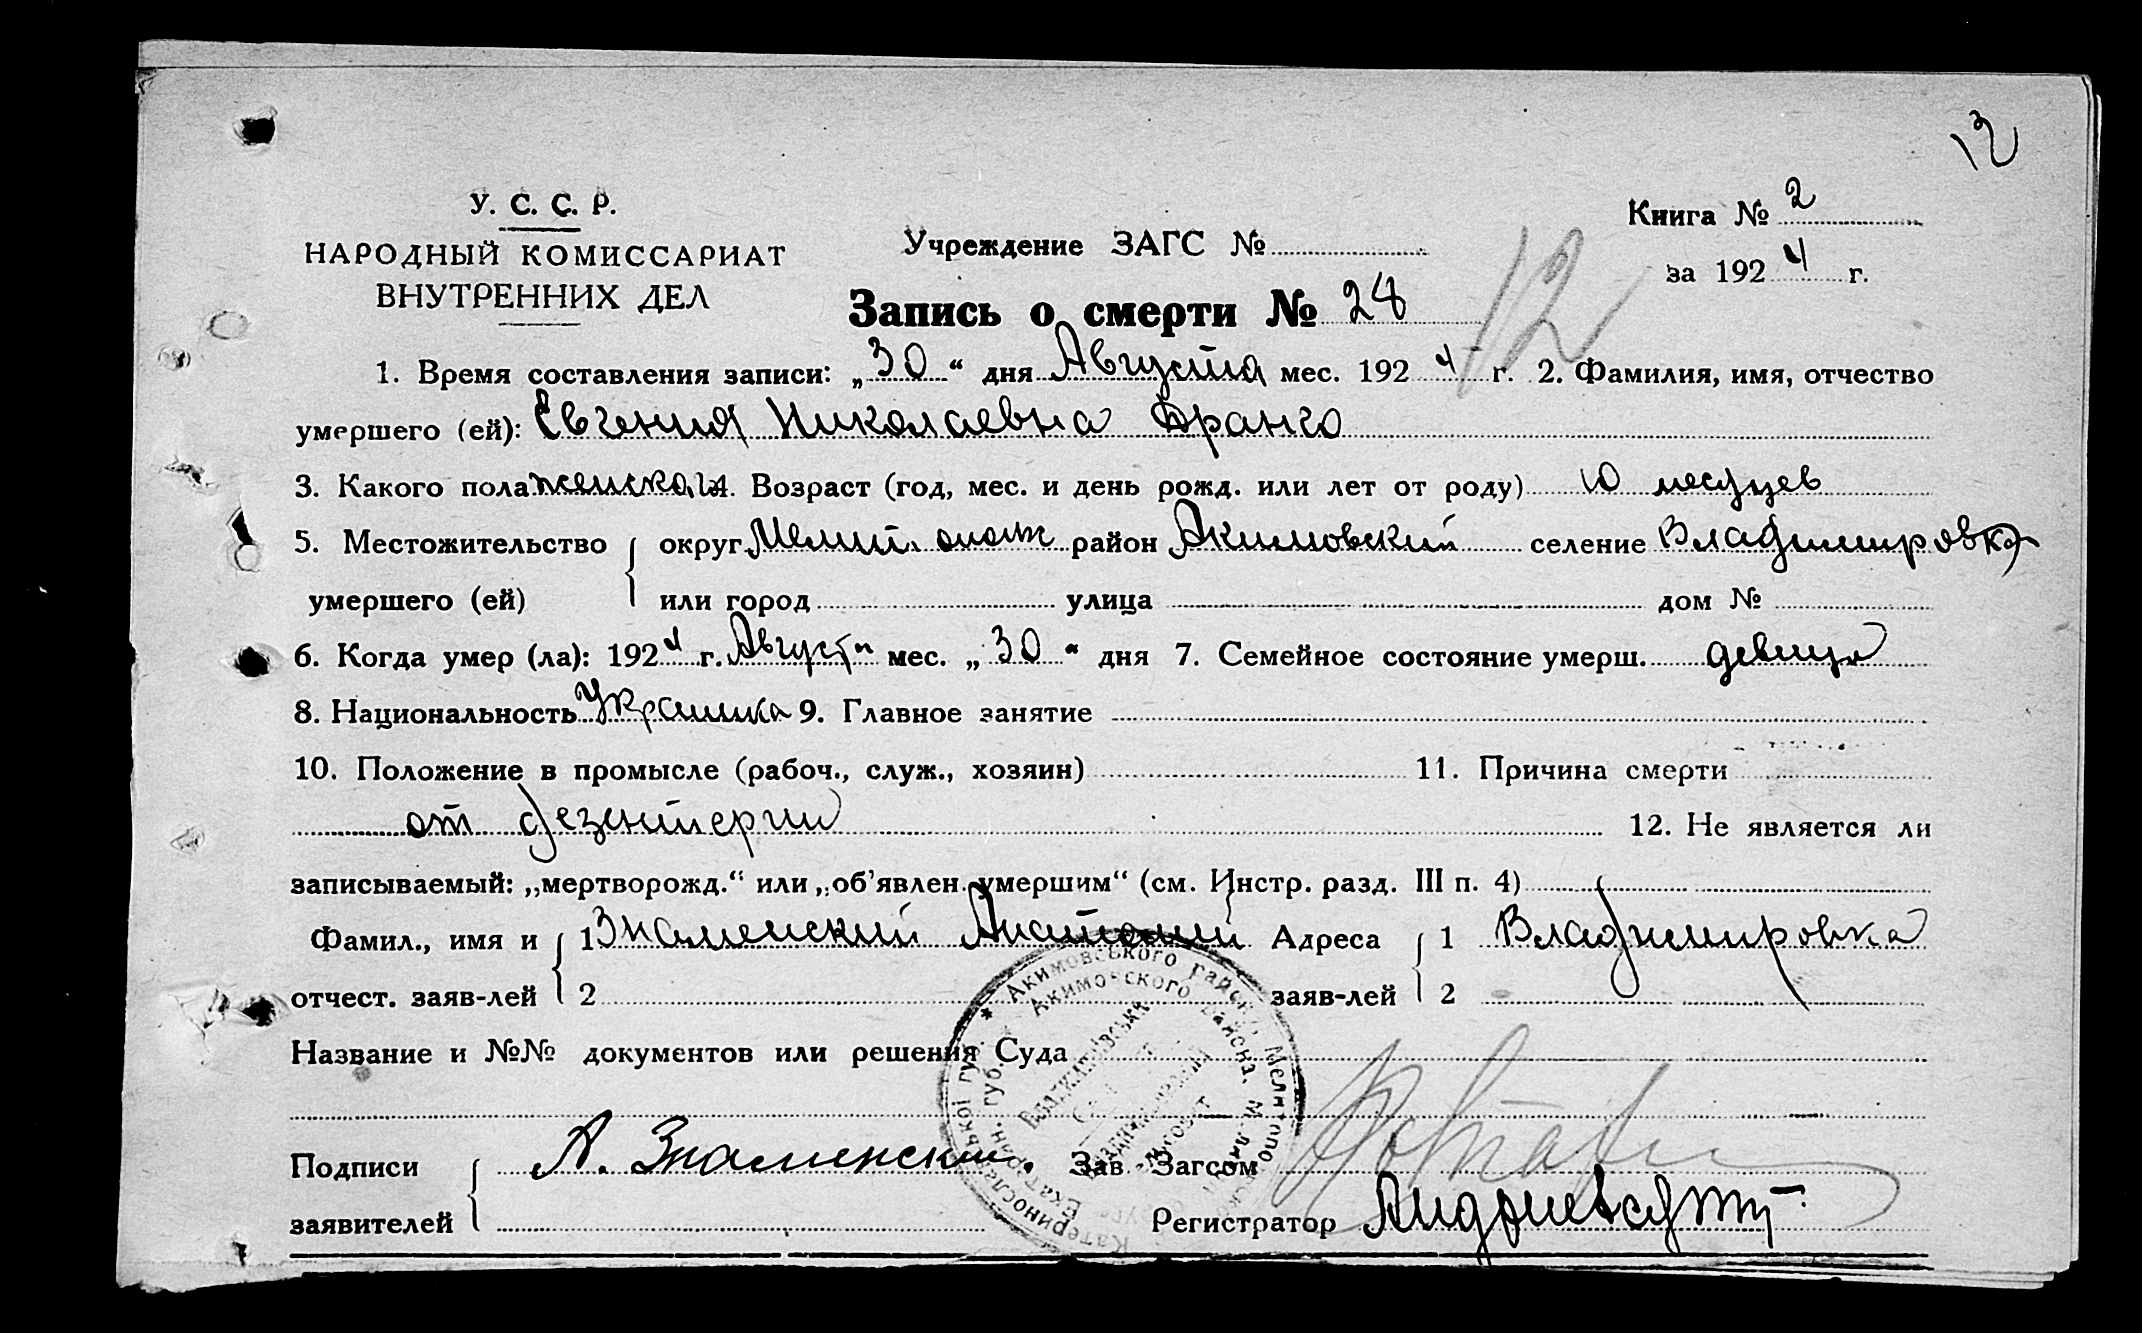 12
У. С. С. Р.
НАРОДНЫЙ КОМИССАРИАТ
ВНУТРЕННИХ ДЕЛ
Учреждение ЗАГС №
Книга № 2
за 1924 г.
Запись о смерти № 28
12
1. Время составления записи: „30“ дня Августа мес. 1924 г. 2. Фамилия, имя, отчество
умершего (ей): Евгения Николаевна Франко
3. Какого пола женского 4. Возраст (год, мес. и день рожд. или лет от роду) 10 месяцев
5. Местожительство округ Мелит. район Акимовский селение Владимировка
умершего (ей) или город улица дом №
6. Когда умер (ла): 1924 г. Августа мес. „30“ дня 7. Семейное состояние умерш. девица
8. Национальность 9. Главное занятие
10. Положение в промысле (рабоч., служ., хозяин) 11. Причина смерти
от дезентерии 12. Не является ли
записываемый: „мертворожд.“ или „об’явлен. умершим“ (см. Инстр. разд. III п. 4)
Фамил., имя и 1 Знаменский Анатолий Адреса 1 Владимировка
отчест. заяв-лей 2 заяв-лей 2
Название и №№ документов или решения Суда
Подписи А. Знаменский. Зав. Загсом
заявителей Регистратор
Акимовського району Мелітопо
Акимовского района.